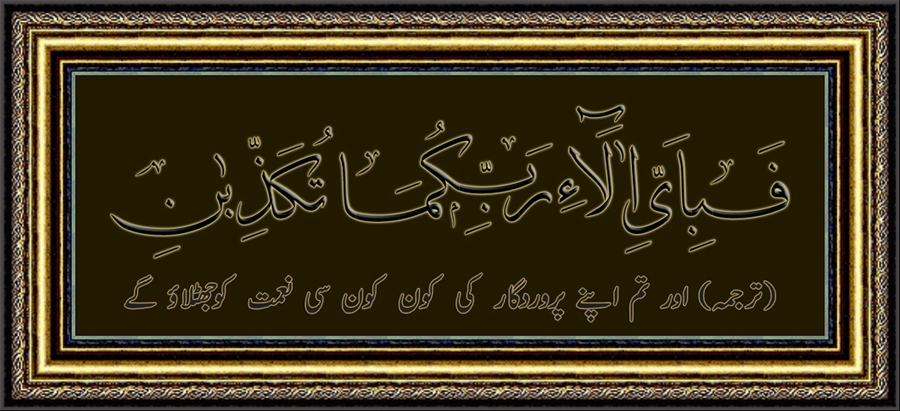 فَبِاَيِّ اٰلَآءِ رَبِّكُمَا تُكَذِّبٰنِ
(ترجمہ) اور تم اپنے پروردگار کی کون کون سی نعمت کو جھٹلاؤ گے